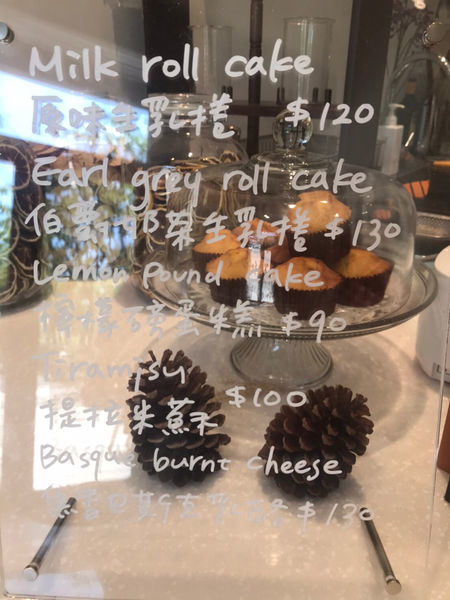 Milk roll cake
原味生乳捲 $120
Earl grey roll cake
伯爵奶茶生乳捲 $130
Lemon Pound cake
檸檬磅蛋糕 $90
Tiramisu
提拉米蘇 $100
Basque burnt cheese
焦香巴斯克乳酪 $130